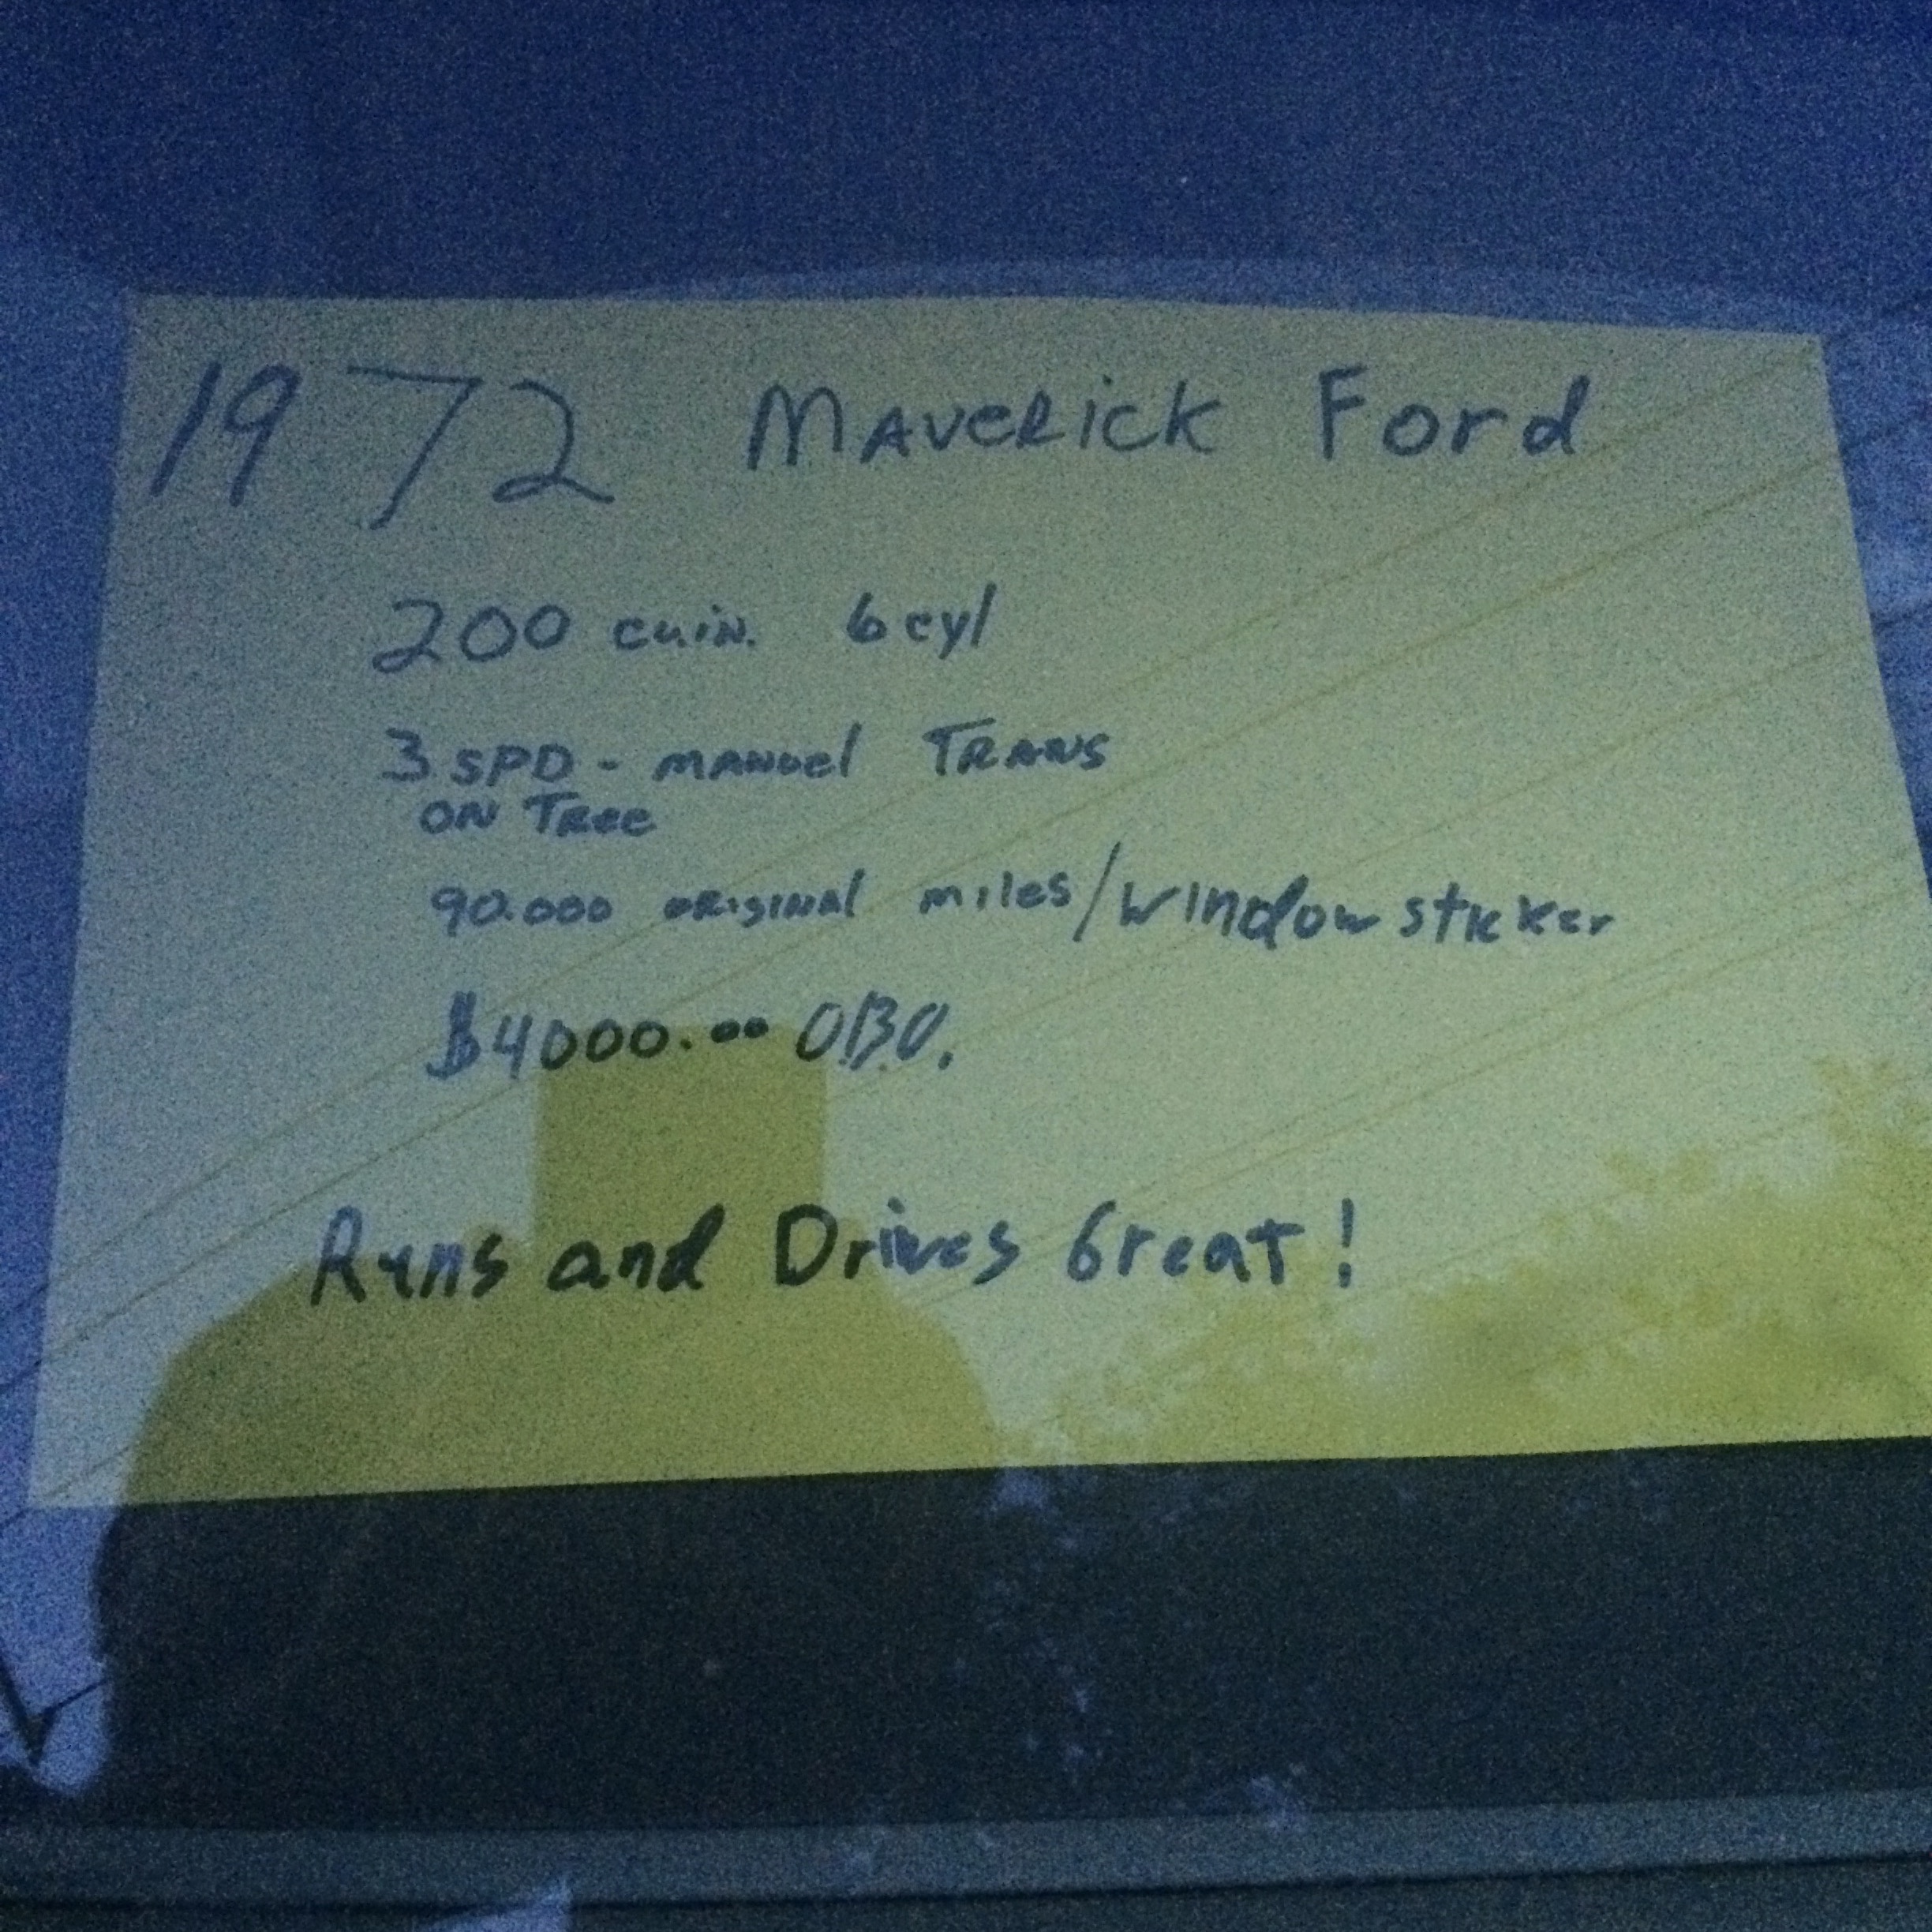 1972 Maverick Ford
200 cu.in. 6 cyl
3 SPD - MANUEL TRANS
ON TREE
90.000 ORIGINAL miles/window sticker
$4000.00 O.B.O.
Runs and Drives Great!